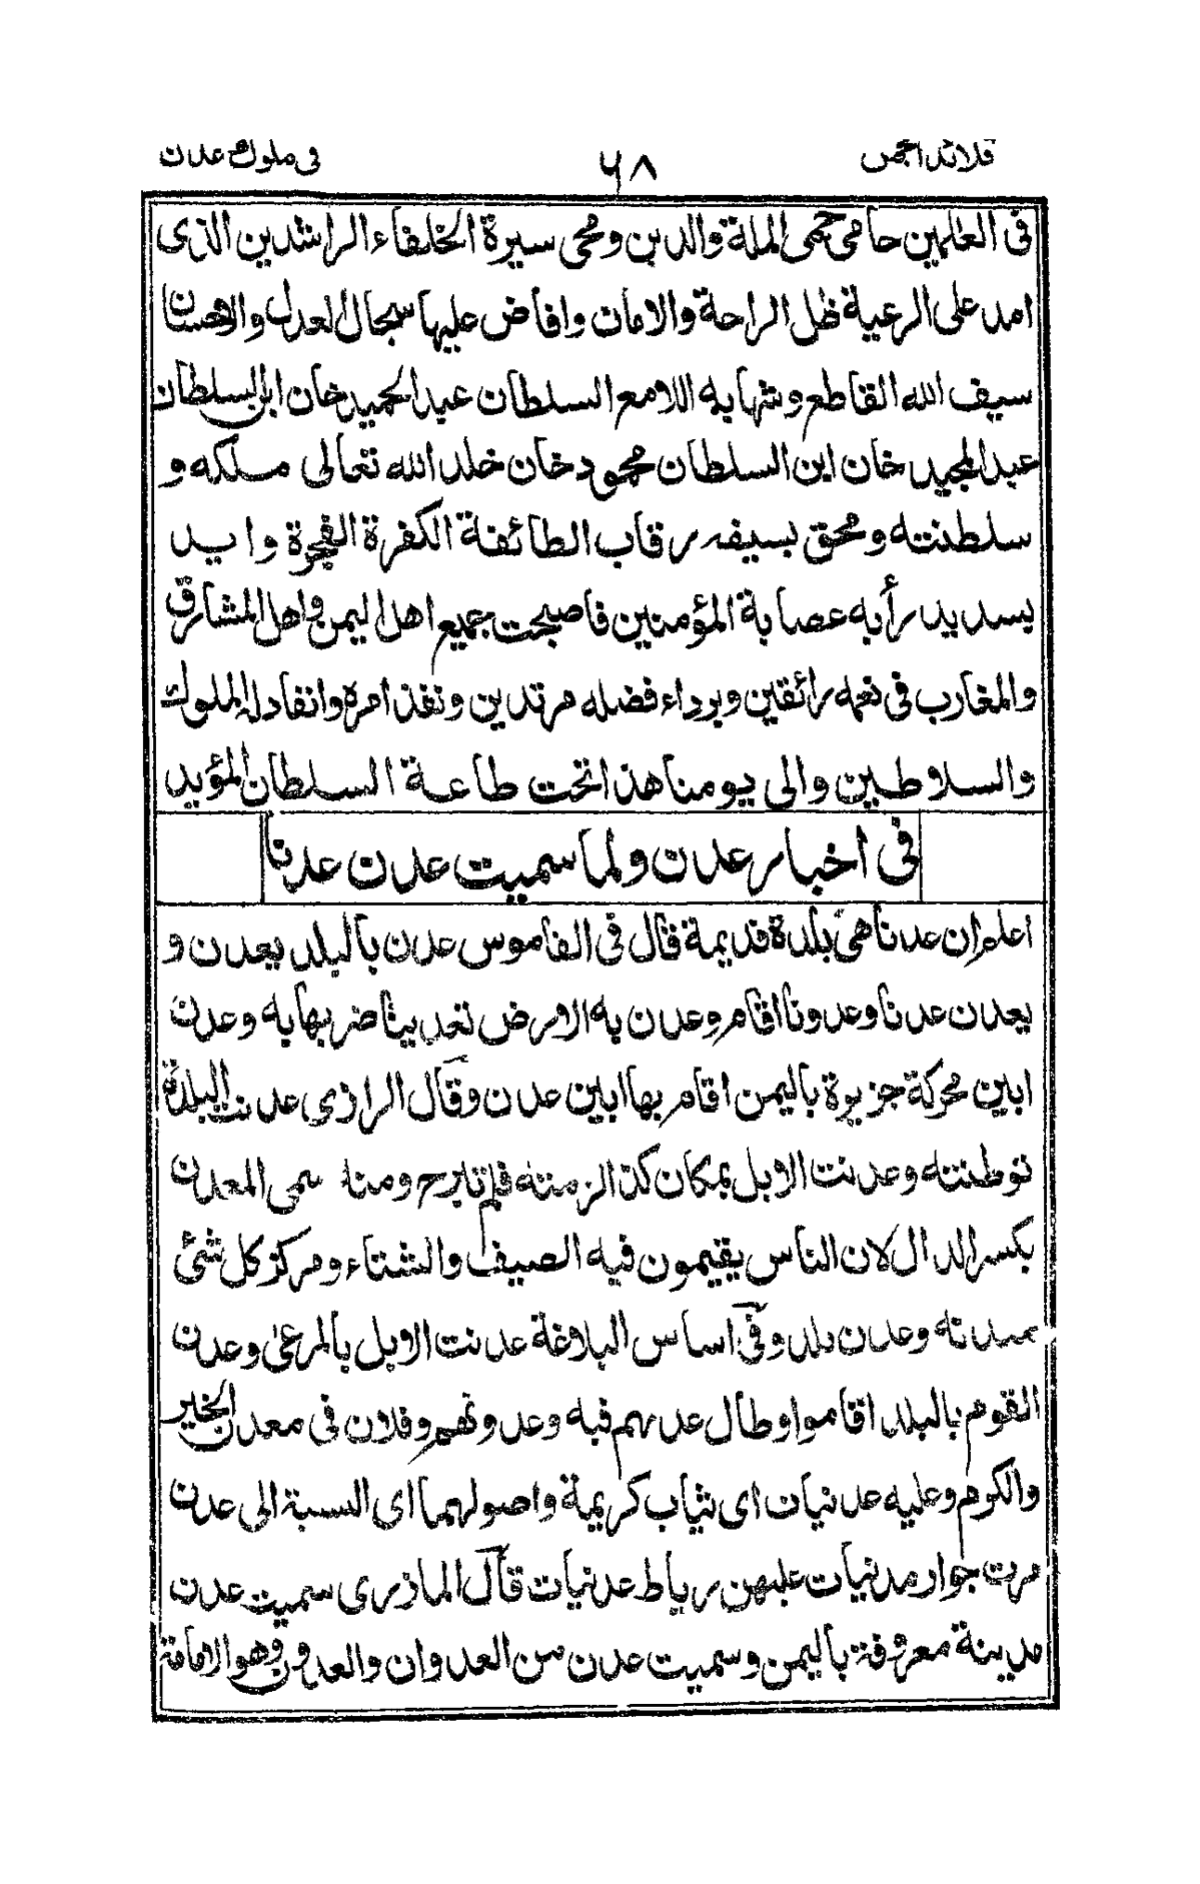 قلائد الجمن ٦٨ فى ملوك عدن
فى العلمين حامى حمى الملة والدين ومحى سيرة الخلفاء الراشدين الذى
امد على الرعية ظل الراحة والامان وافاض عليها سجال العدل والاحسان
سيف الله القاطع وشهابه اللامع السلطان عبد الحميد خان ابن السلطان
عبد المجيد خان ابن السلطان محمود خان خلد الله تعالى ملكه و
سلطنته ومحق بسيفه رقاب الطائفة الكفرة الفجرة وايد
بسديد رأيه عصابة المؤمنين فاصبحت جميع اهل اليمن واهل المشارق
والمغارب فى نعمه رائقين وبرداء فضله مرتدين ونفذ امره وانقاد له الملوك
والسلاطين والى يومنا هذا تحت طاعة السلطان المؤيد
فى اخبار عدن ولما سميت عدن عدنا
اعلم ان عدنا هى بلدة قديمة قال فى القاموس عدن بالبلد يعدن و
يعدن عدنا وعدونا اقام وعدن به الارض تعدينا ضربها به وعدن
ابين محركة جزيرة باليمن اقام بها ابين عدن وقال الرازى عدنت البلدة
توطنته وعدنت الابل بمكان كذا لزمته فلم تبرح ومنه سمى المعدن
بكسر الدال لان الناس يقيمون فيه الصيف والشتاء ومركز كل شئ
معدنه وعدن بلد وفى اساس البلاغة عدنت الابل بالمرعى وعدن
القوم بالبلد اقاموا وطال عدنهم فيه وعدونهم وفلان فى معدن الخير
والكرم وعليه عدنيات اى ثياب كريمة واصولهما اى النسبة الى عدن
مرت جوار مدنيات عليهن رياط عدنيات قال المازرى سميت عدن
مدينة معروفة باليمن وسميت عدن من العدوان والعدون وهو الاقامة